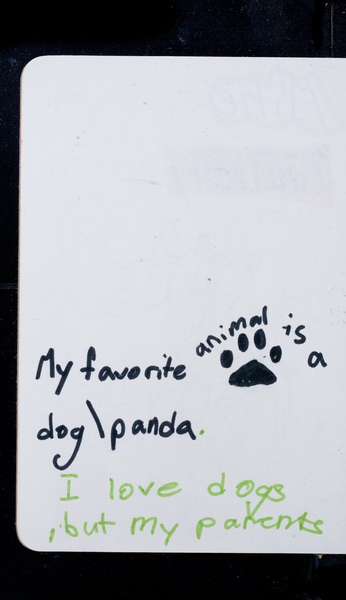 My favorite animal is a
dog\panda.
I love dogs
,but my parents